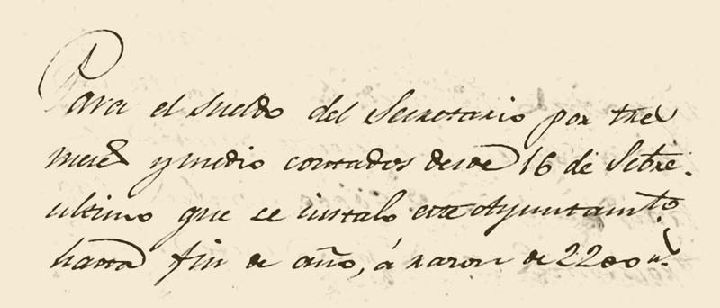 Para el sueldo del Secretario por tres
meses y medio contados desde 16 de Setbre.
ultimo que se instalo este Ayuntamto.
hasta fin de año, á razon de 2200 rs.